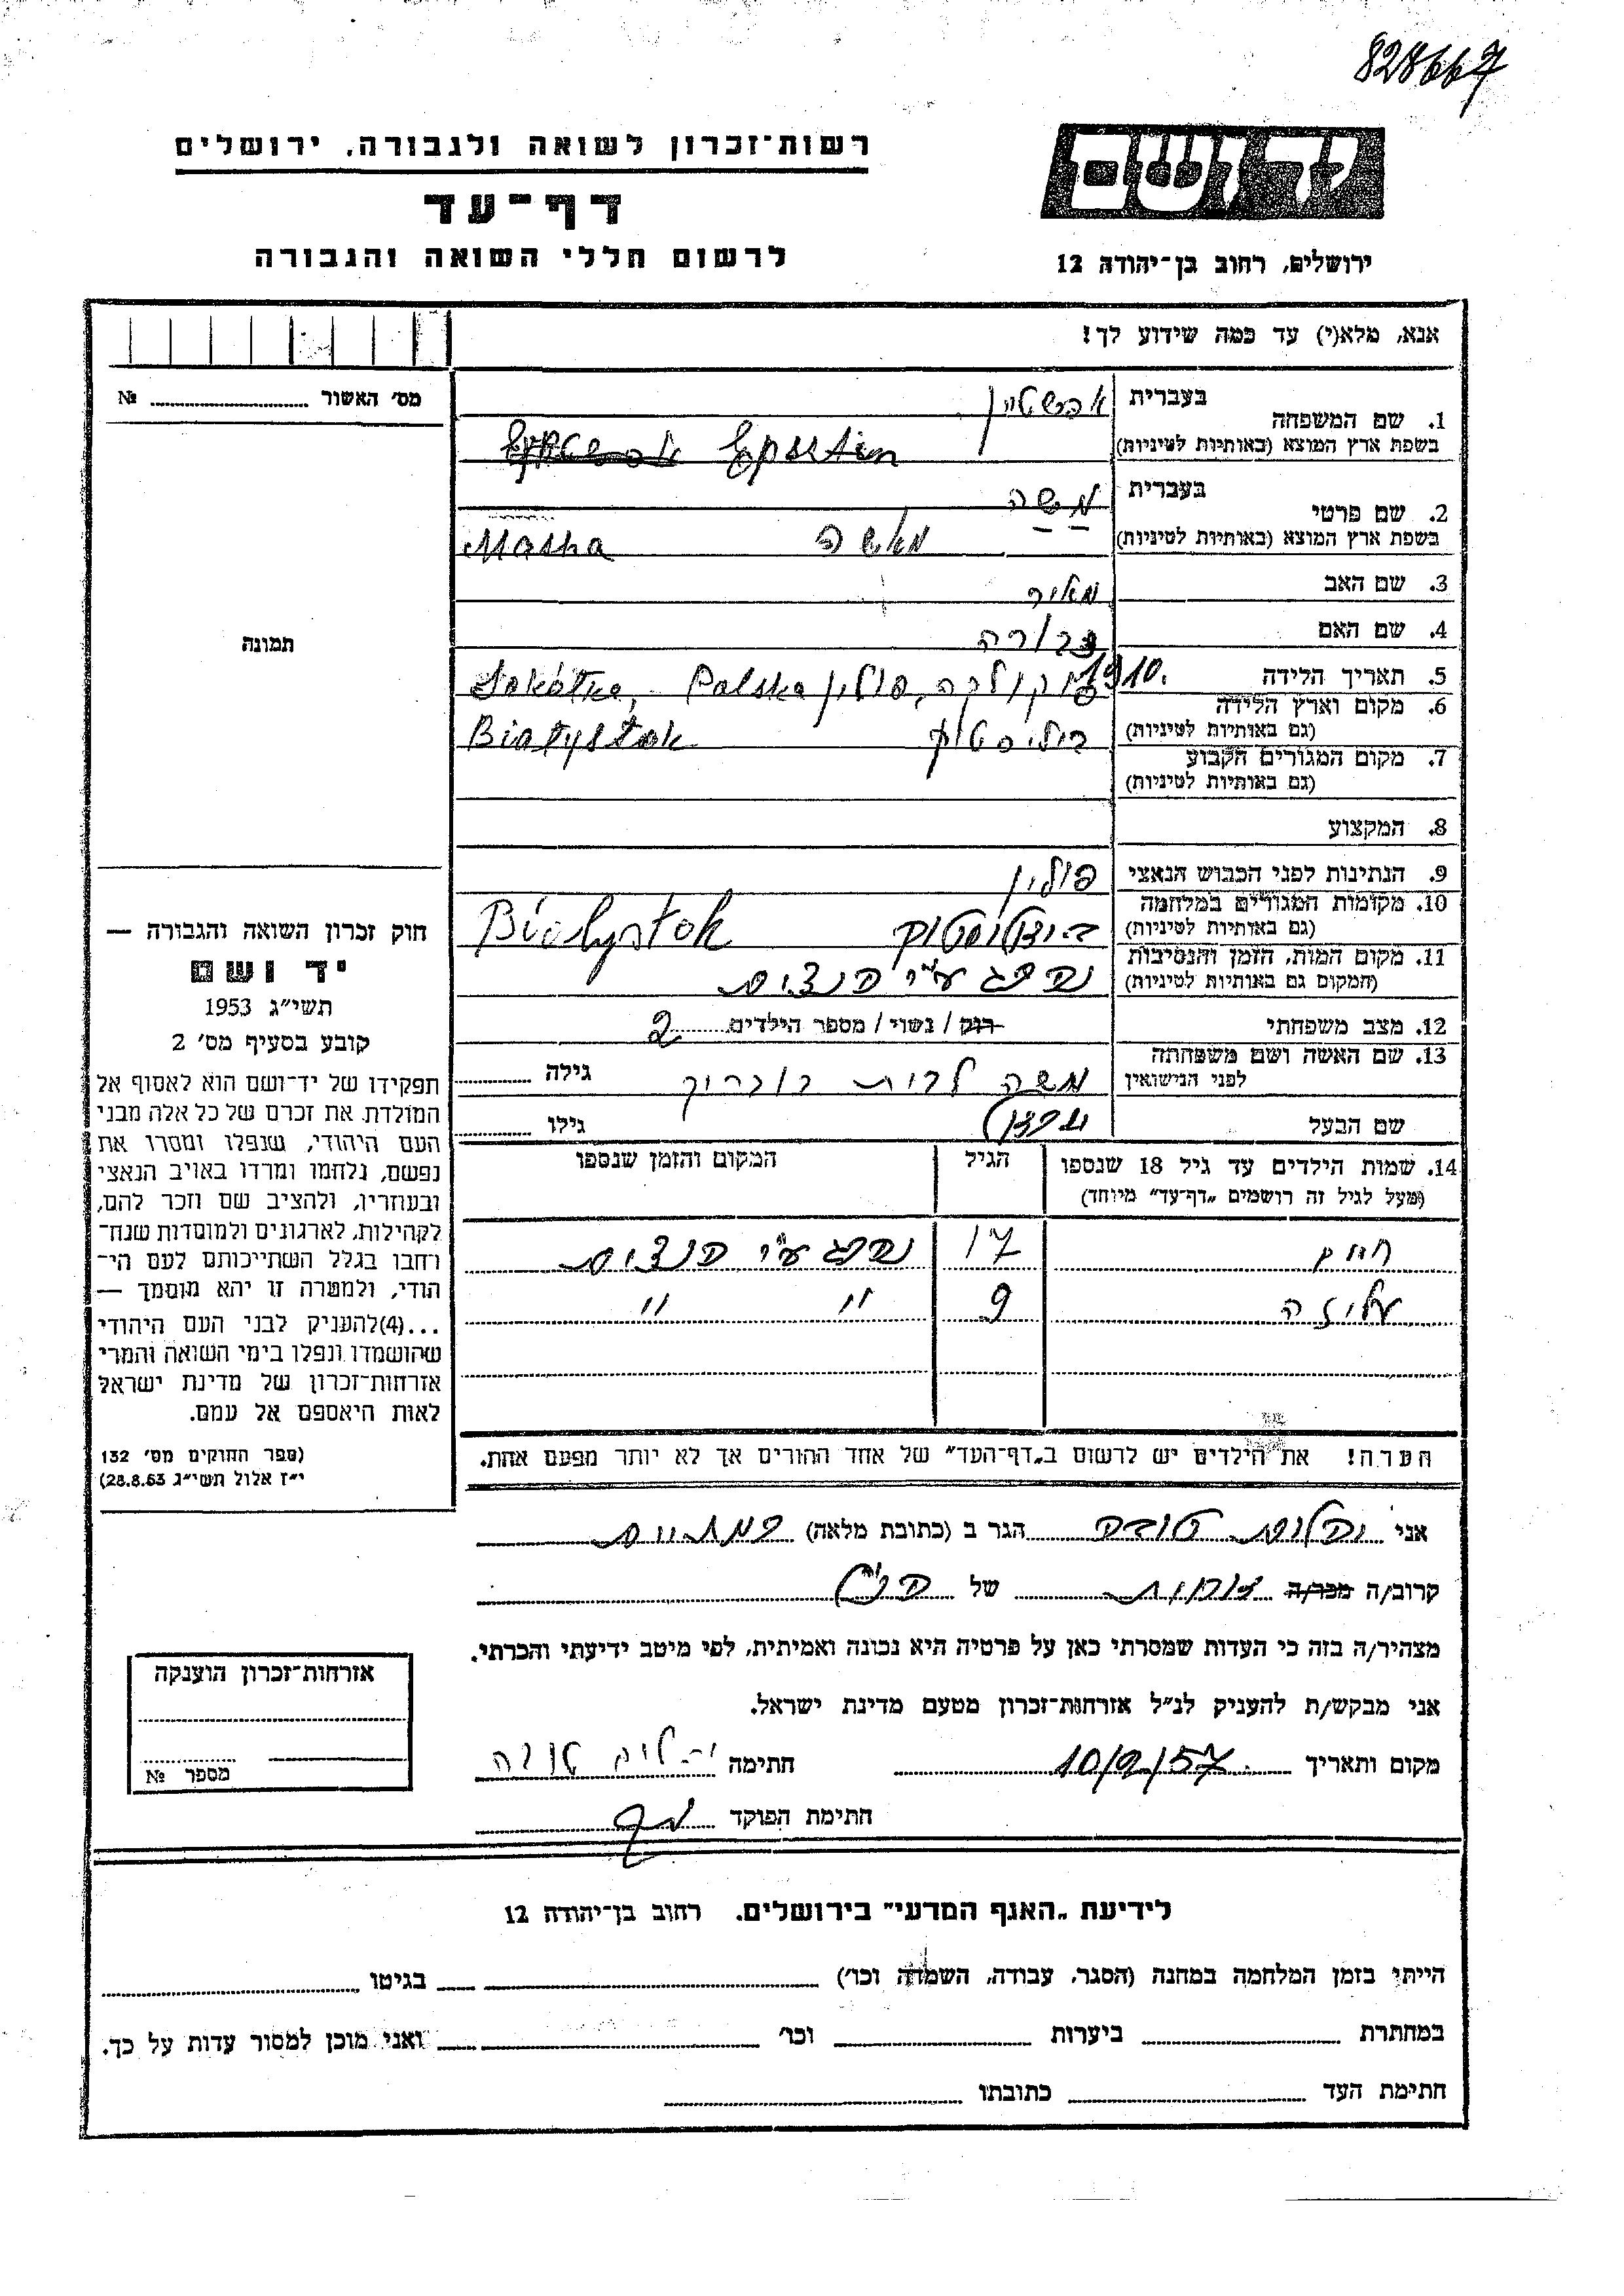 828667
רשות־זכרון לשואה ולגבורה, ירושלים
דף־עד
לרשום חללי השואה והגבורה
יד ושם
ירושלים, רחוב בן־יהודה 12
אנא, מלא(י) עד כמה שידוע לך!
מס׳ האשור № 
1. שם המשפחה
בעברית אפשטין
בשפת ארץ המוצא (באותיות לטיניות) Epsstein
2. שם פרטי
בעברית משה
בשפת ארץ המוצא (באותיות לטיניות) מאשה Masha
3. שם האב מאיר
4. שם האם דבורה
5. תאריך הלידה 1910.
6. מקום וארץ הלידה (גם באותיות לטיניות) סוקולקה, פולין Sokółka, Polska
7. מקום המגורים הקבוע (גם באותיות לטיניות) ביליסטוק Białystok
8. המקצוע
9. הנתינות לפני הכבוש הנאצי פולין
10. מקומות המגורים במלחמה (גם באותיות לטיניות) ביאליסטוק Białystok
11. מקום המות, הזמן והנסיבות (המקום גם באותיות לטיניות) נספה ע״י הנצים
12. מצב משפחתי רוק / נשוי / מספר הילדים 2
13. שם האשה ושם משפחתה לפני הנישואין משה לבית גילה
שם הבעל גילו
14. שמות הילדים עד גיל 18 שנספו
(מעל לגיל זה רושמים „דף־עד״ מיוחד)
הגיל
המקום והזמן שנספו
17 נספה ע״י הנצים
עליזה 9 " "
הערה! את הילדים יש לרשום ב„דף־העד״ של אחד ההורים אך לא יותר מפעם אחת.
תמונה
חוק זכרון השואה והגבורה —
יד ושם
תשי״ג 1953
קובע בסעיף מס׳ 2
תפקידו של יד־ושם הוא לאסוף אל
המולדת את זכרם של כל אלה מבני
העם היהודי, שנפלו ומסרו את
נפשם, נלחמו ומרדו באויב הנאצי
ובעוזריו, ולהציב שם וזכר להם,
לקהילות, לארגונים ולמוסדות שנח־
רבו בגלל השתייכותם לעם הי־
הודי, ולמטרה זו יהא מוסמך —
...(4) להעניק לבני העם היהודי
שהושמדו ונפלו בימי השואה והמרי
אזרחות־זכרון של מדינת ישראל
לאות היאספם אל עמם.
(ספר החוקים מס׳ 132
י״ז אלול תשי״ג 28.8.53)
אני טובה הגר ב (כתובת מלאה)
קרוב/ה מכר/ה של
מצהיר/ה בזה כי העדות שמסרתי כאן על פרטיה היא נכונה ואמיתית, לפי מיטב ידיעתי והכרתי.
אני מבקש/ת להעניק לנ״ל אזרחות־זכרון מטעם מדינת ישראל.
מקום ותאריך 10/9/57 חתימה טובה
חתימת הפוקד
אזרחות־זכרון הוענקה
מספר №
לידיעת „האגף המדעי״ בירושלים, רחוב בן־יהודה 12
הייתי בזמן המלחמה במחנה (הסגר, עבודה, השמדה וכו׳) בגיטו
במחתרת ביערות וכו׳ ואני מוכן למסור עדות על כך.
חתימת העד כתובתו